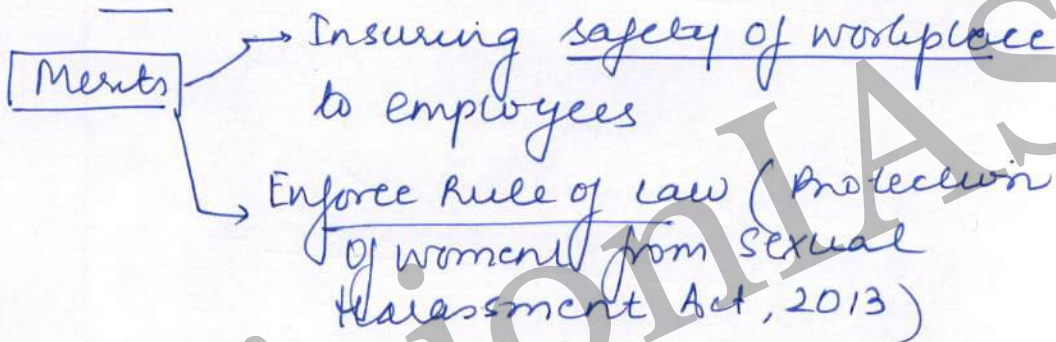 Merits
→ Insuring safety of workplace
to employees
→ Enforce Rule of Law (Protection
of woment from sexual
Harassment Act, 2013)
ionIAS